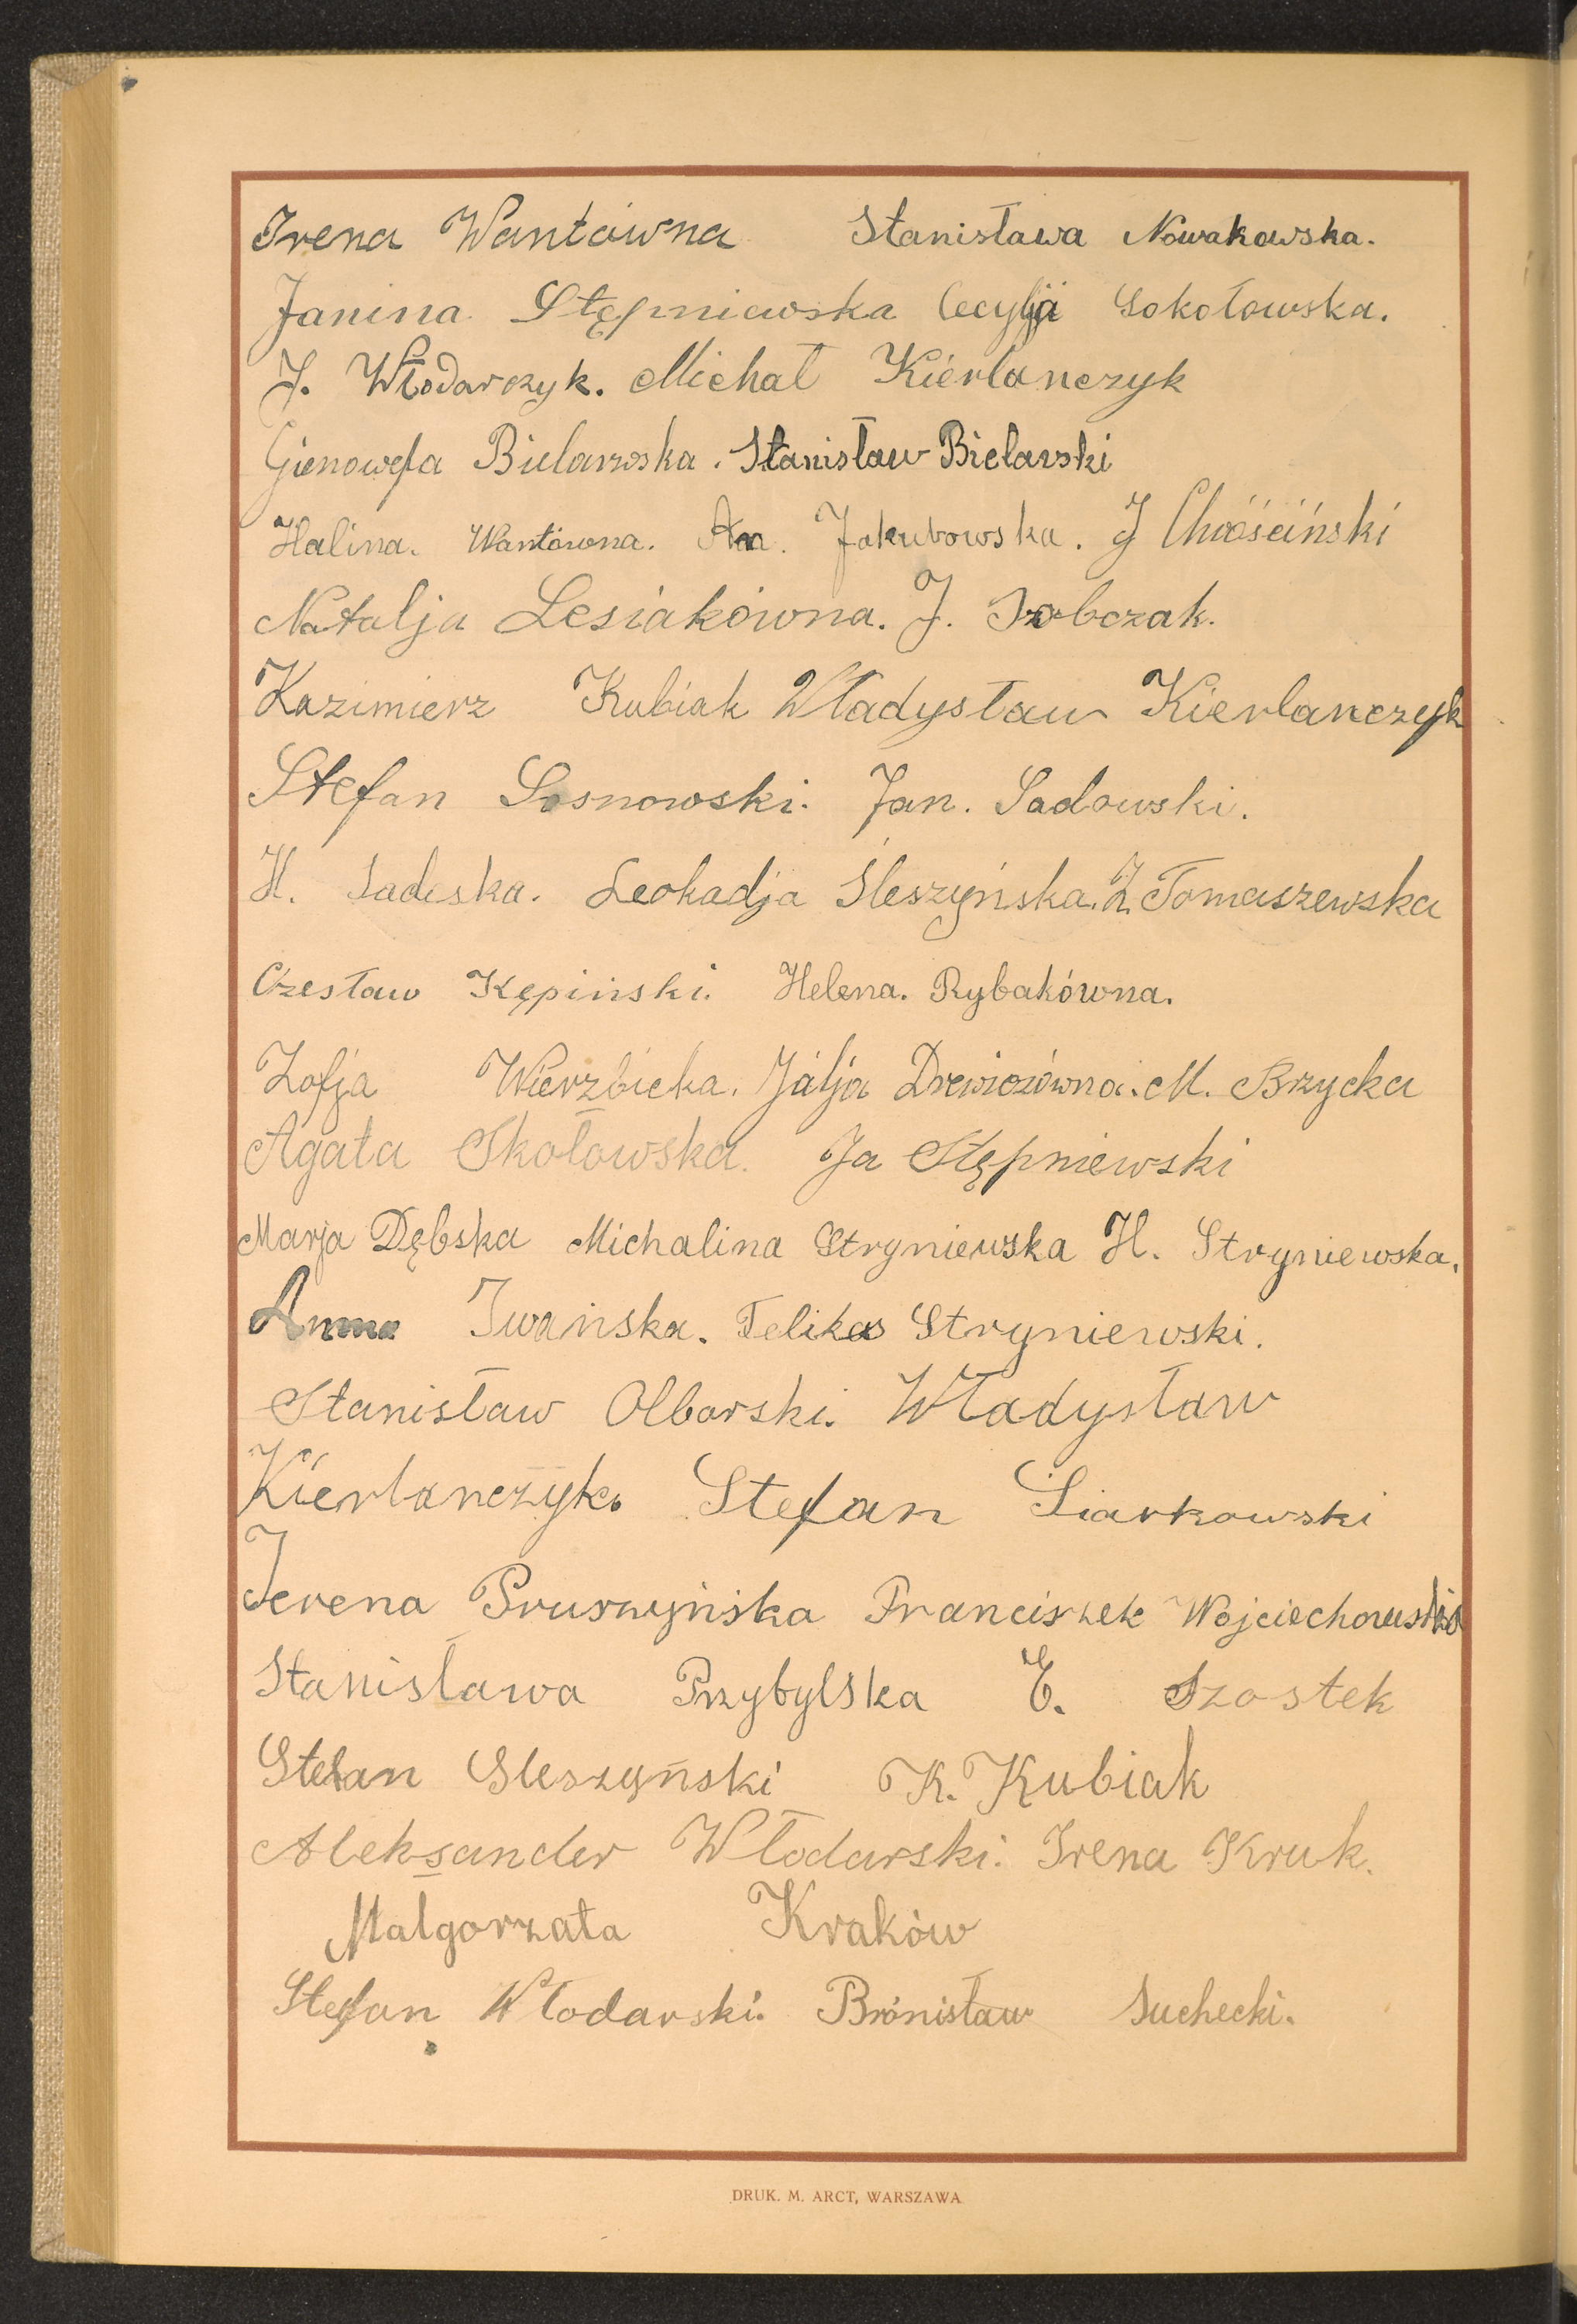 Irena Wantówna Stanisława Nowakowska.
Janina Stępniewska Cecylja Sokołowska.
J. Włodarczyk. Michał Kierlanczyk
Gienowefa Bielarska. Stanisław Bielarski
Halina. Wantówna. Jakubowska. J Chróściński
Natalja Lesiakówna. J. Sobczak.
Kazimierz Kubiak Władysław Kierlanczyk
Stefan Sosnowski. Jan. Sadowski.
H. Sadeska. Leokadja Śleszyńska. Z. Tomaszewska
Czesław Kępiński. Helena. Rybakówna.
Zofja Wierzbicka. Julja M. Brzycka
Agata Skołowska. Ja Stępniewski
Marja Dębska Michalina Stryniewska H. Stryniewska.
Anna Iwańska. Feliks Stryniewski.
Stanisław Olborski. Władysław
Kierlanczyk. Stefan Siarkowski
Jerena Pruszyńska Franciszek Wojciechowski
Stanisława Przybylska E. Szostek
Stefan Sleszyński K. Kubiak
Aleksander Włodarski. Irena Kruk.
Malgorzata Kraków
Stefan Włodarski. Bronisław Suchecki.
DRUK. M. ARCT, WARSZAWA